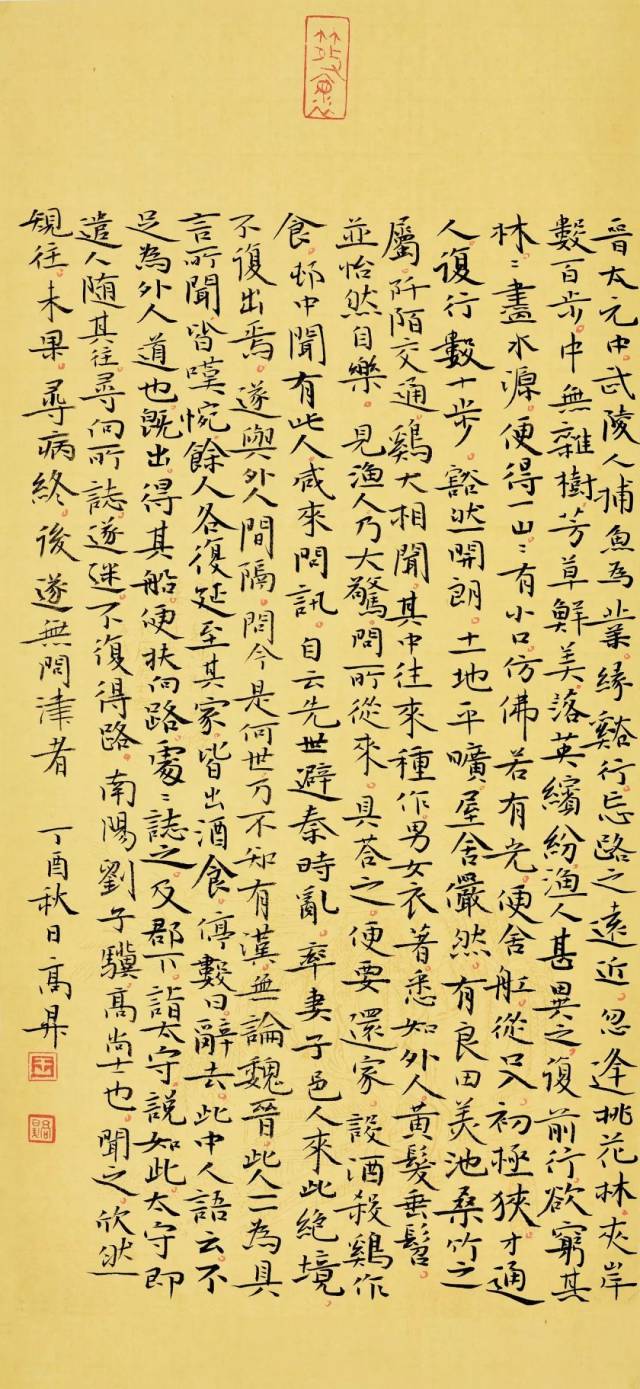 晉太元中武陵人捕魚為業緣谿行忘路之遠近忽逢桃花林夾岸
數百步中無雜樹芳草鮮美落英繽紛漁人甚異之復前行欲窮其
林〻盡水源便得一山〻有小口仿佛若有光便舍舡從口入初極狹才通
人復行數十步豁然開朗土地平曠屋舍儼然有良田美池桑竹之
屬阡陌交通鷄犬相聞其中往來種作男女衣著悉如外人黃髮垂髫
並怡然自樂見漁人乃大驚問所從來具荅之便要還家設酒殺鷄作
食邨中聞有此人咸來問訊自云先世避秦時亂率妻子邑人來此絕境
不復出焉遂與外人間隔問今是何世乃不知有漢無論魏晉此人一一為具
言所聞皆嘆惋餘人各復延至其家皆出酒食停數日辭去此中人語云不
足為外人道也既出得其船便扶向路處〻誌之及郡下詣太守說如此太守即
遣人隨其往尋向所誌遂迷不復得路南陽劉子驥高尚士也聞之欣然
規往未果尋病終後遂無問津者 丁酉秋日高昇